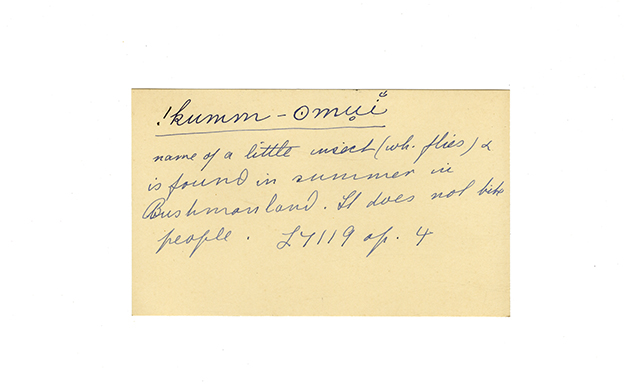 !kumm-ʘmụĭ
name of a little insect (wh. flies) &
is found in summer in
Bushmanland. It does not bite
people. L7119 op. 4